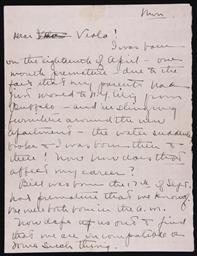 Mon
Dear Viola!
I was born
on the eighteenth of April - one
month premature - due to the
fact that my parents had
just moved to Kittling from
Buffalo - and in slinging
furniture around the new
apartment - the water suddenly
broke & I was born then &
there! Now how does that
affect my career?
Bill was born the 17th of Sept.
Not premature that we know.
We were both born in the a.m.
Now dope us out & find
that we are incompatible or
some such thing.